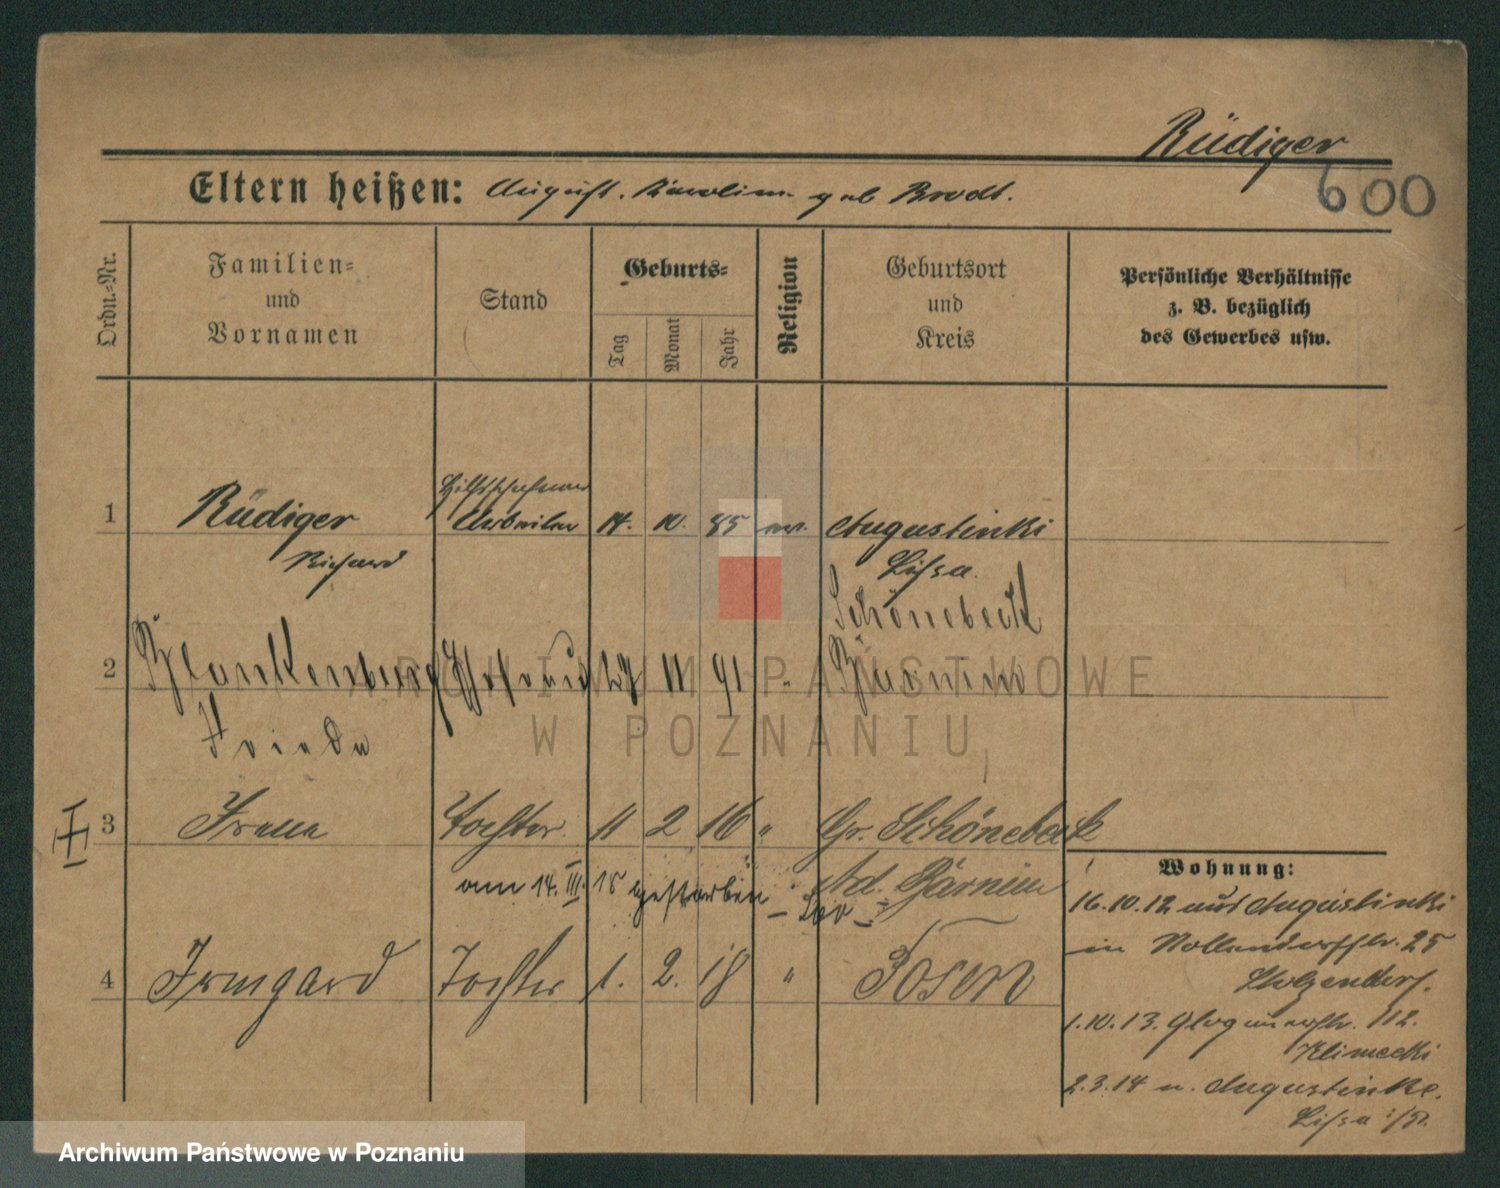 Rüdiger
600
Eltern heißen: August. Karolina geb Brodt.
Ordn.-Nr.
Familien-
und
Vornamen
Stand
Geburts-
Tag
Monat
Jahr
Religion
Geburtsort
und
Kreis
Persönliche Verhältnisse
z. B. bezüglich
des Gewerbes usw.
Hilfsschaffner
1 Rüdiger Arbeiter 14. 10. 85 ev. Augustinki
Richard Lissa.
Schönebeck
2 Blankenberg Ehefrau 11 91 " Barnim
Frieda
3 Irena Tochter. 11 2 16 " Gr. Schönebeck
am 14. III. 18 gestorben Nd. Barnim
4 Irmgard Tochter 1. 2. 18 " Posen
Wohnung:
16.10.12 aus Augustinki
in Nollendorffstr. 25
Stolzendorf.
1.10.13. Glogauerstr. 112.
Klimecki
2.3.14 n. Augustinke.
Lissa i/P.
ARCHIWUM PAŃSTWOWE
W POZNANIU
Archiwum Państwowe w Poznaniu